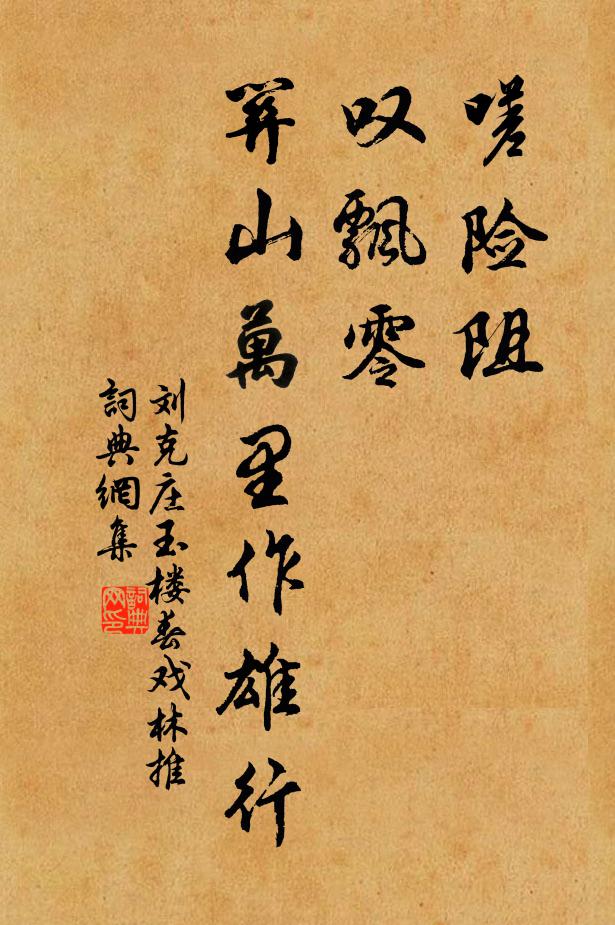 嗟险阻
叹飘零
関山萬里作雄行
刘克庄玉楼春戏林推
詞典網集
詞典
网印